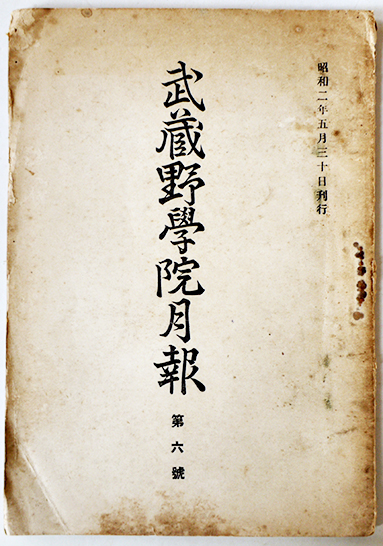 昭和二年五月三十日刊行
武蔵野學院月報
第六號